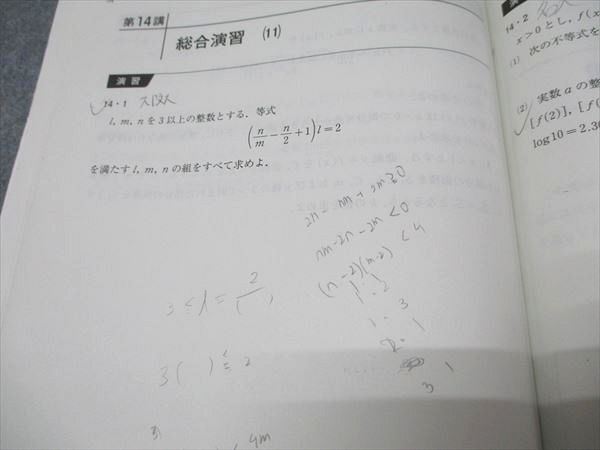 第14講
総合演習 (11)
演習
14・1
l, m, n を3以上の整数とする．等式
(n/m − n/2 + 1) l = 2
を満たす l, m, n の組をすべて求めよ．
2n - nm + 2m > 0
nm-2n-2m < 0
(n-2)(m-2) < 4
1 · 2
1 · 3
2 · 1
3 1
3 ≤ l = 2/( )
3 ( ) ≤ 2
4m
14・2
x>0 とし，f(x
(1) 次の不等式を
(2) 実数 a の整
[f(2)]，[f(
log10=2.30